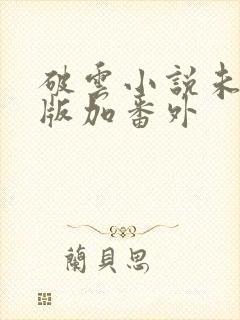 破雲小說未
版加番外
蘭貝思